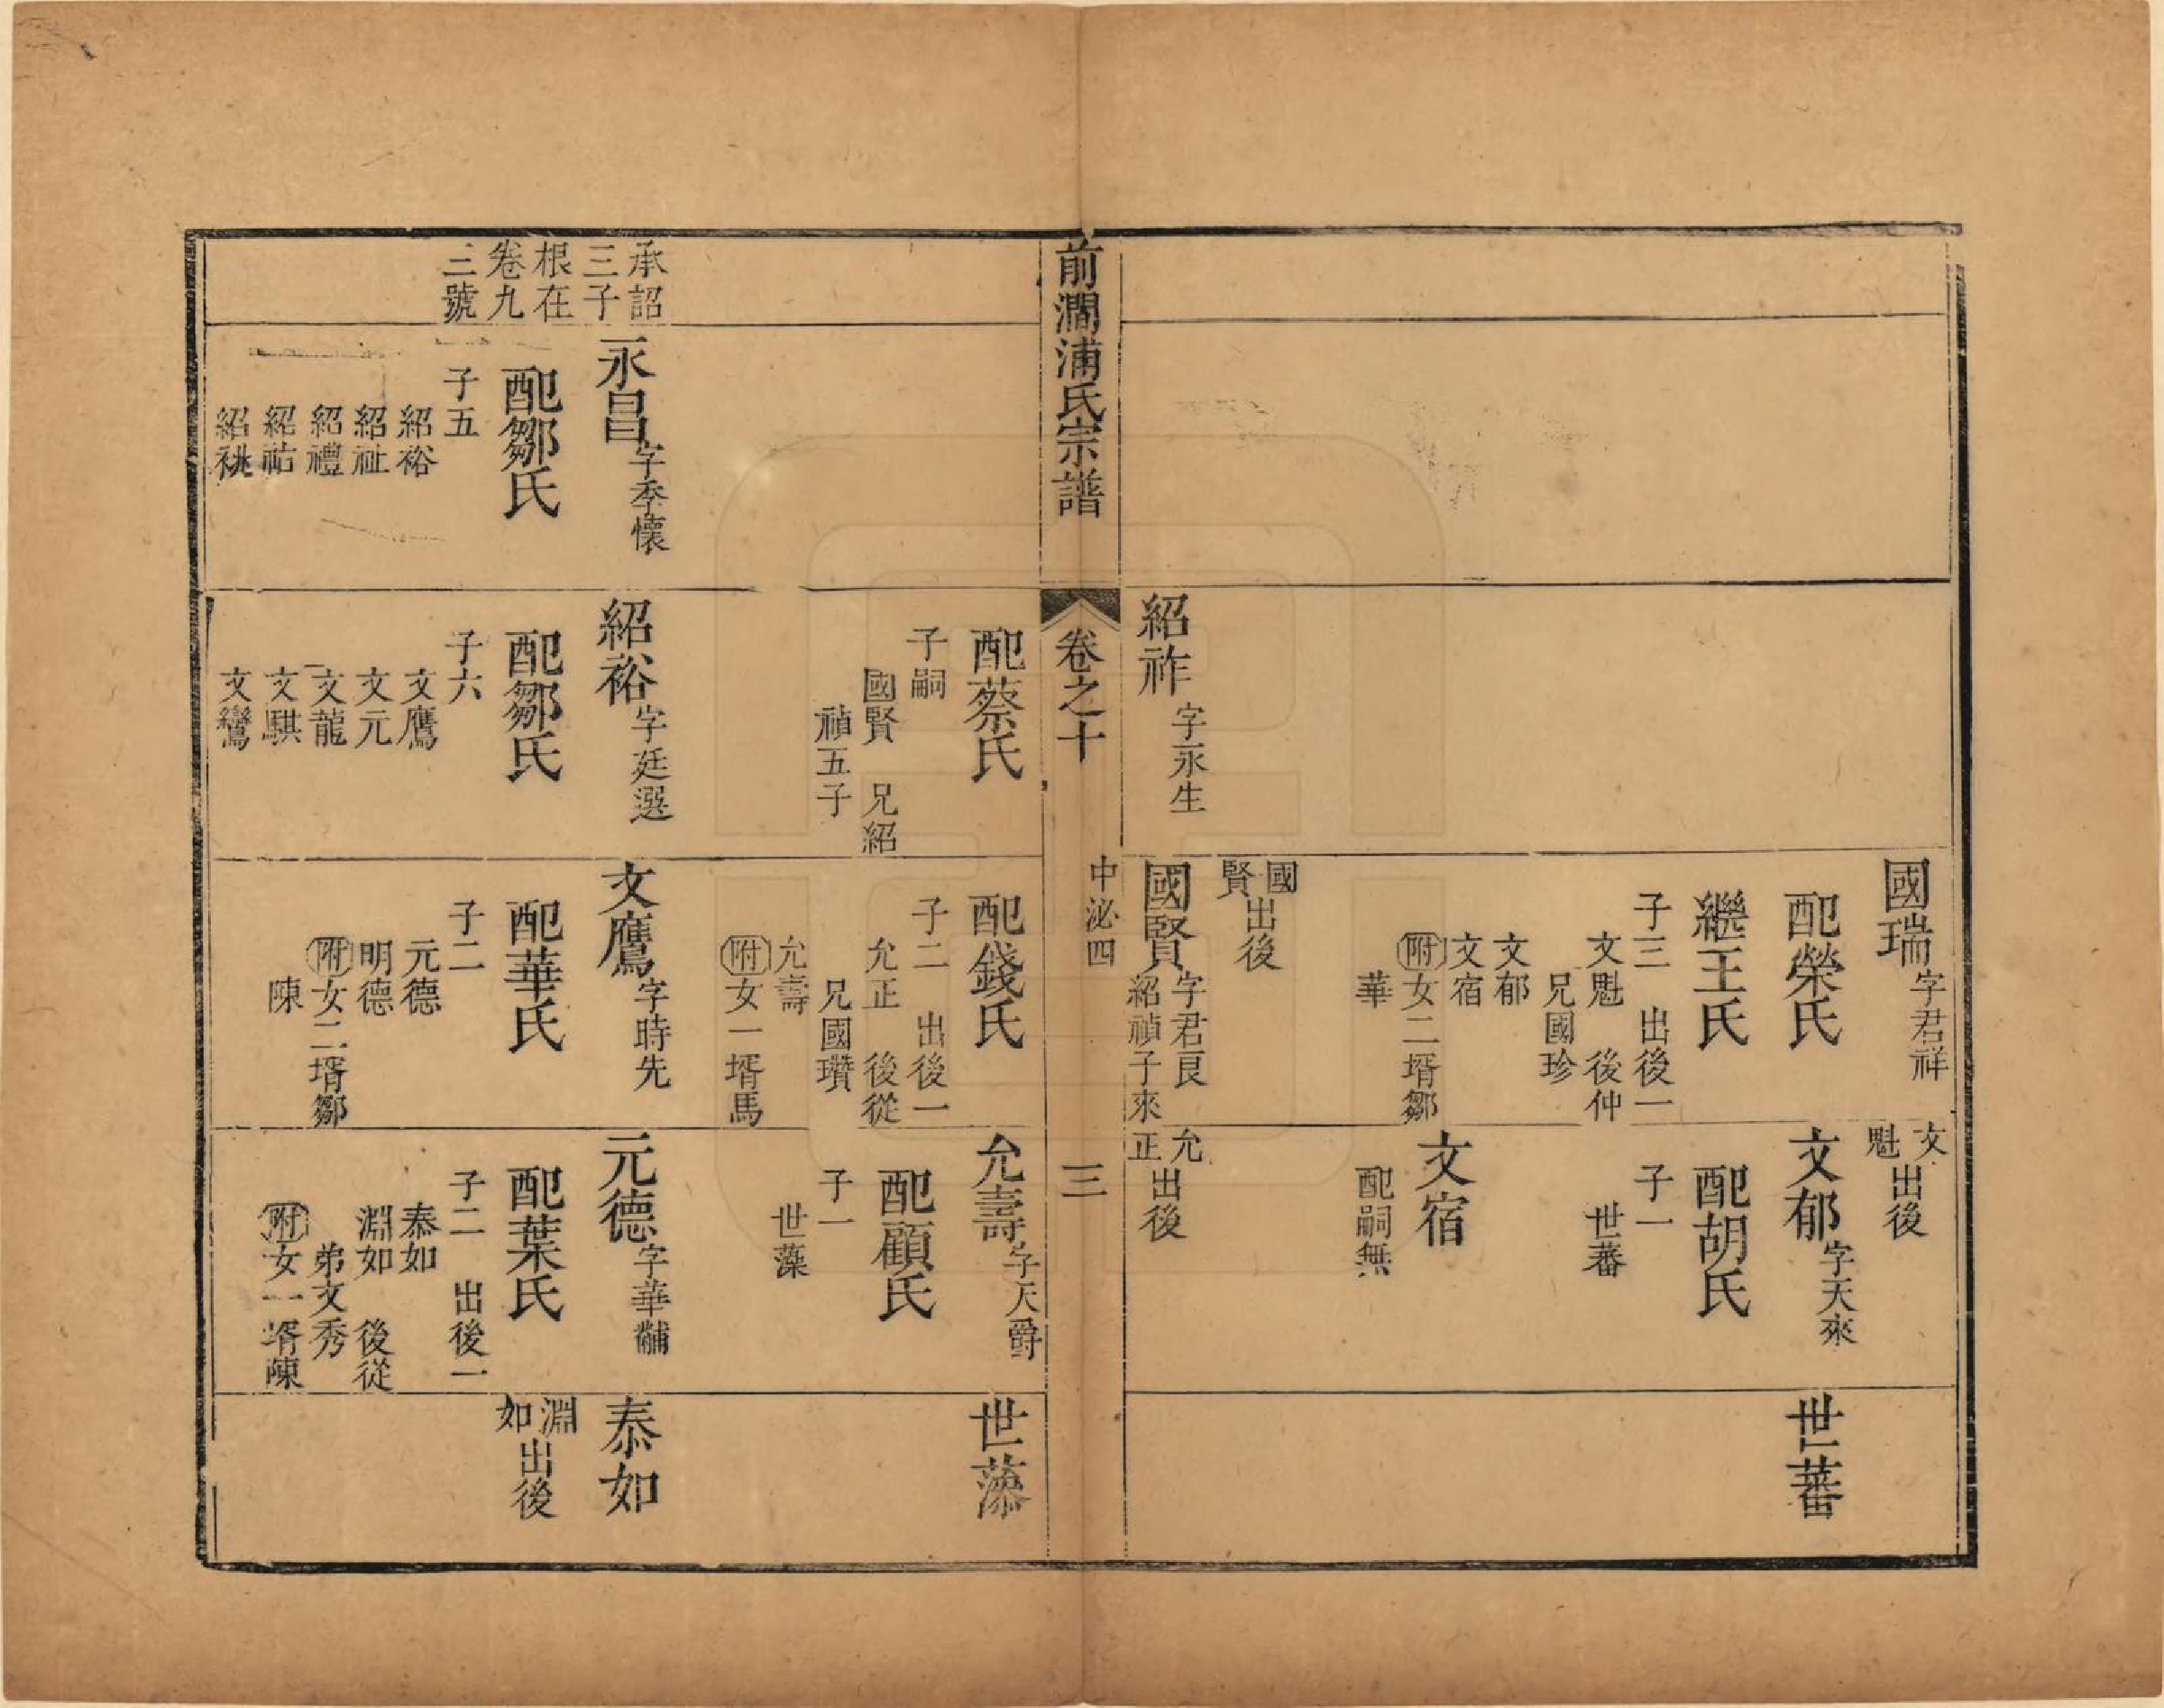 紹祚 字永生
國瑞 字君祥
配榮氏
繼王氏
子三 出後一
文魁 後仲
兄國珍
文郁
文宿
附女二壻鄒
華
國賢 出後
國賢 字君良
紹禎子來
文魁 出後
文郁 字天來
配胡氏
子一
世蕃
文宿
配嗣無
允正 出後
世蕃
前澗浦氏宗譜
卷之十
中泌四
三
配蔡氏
子嗣
國賢 兄紹
禎五子
配錢氏
子二 出後一
允正 後從
兄國瓚
允壽
附女一壻馬
允壽 字天爵
配顧氏
子一
世藻
世藻
承詔
三子
根在
卷九
三號
永昌 字季懷
配鄒氏
子五
紹裕
紹祉
紹禮
紹祜
紹祧
紹裕 字廷選
配鄒氏
子六
文鷹
文元
文龍
文騏
文鸞
文鷹 字時先
配華氏
子二
元德
明德
附女二壻鄒
陳
元德 字華黼
配葉氏
子二 出後一
泰如
淵如 後從
弟文秀
附女一壻陳
泰如
淵如 出後